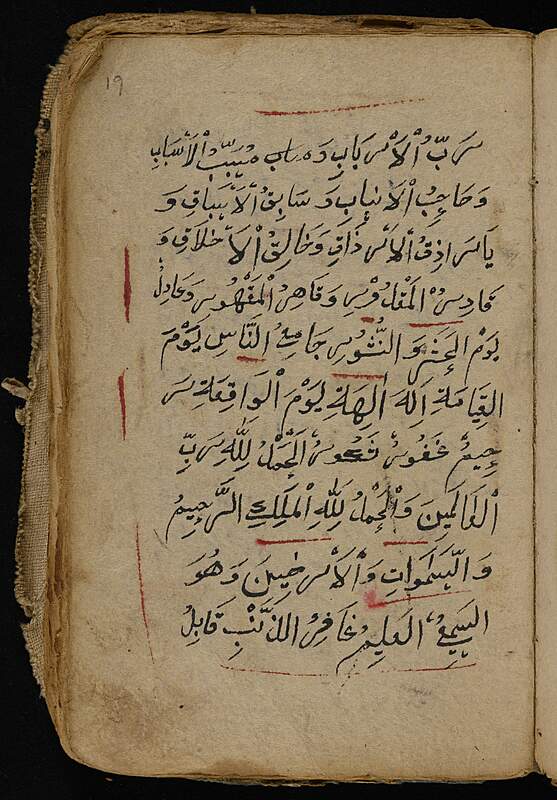 19
رَبِّ الْاَرْبَابِ وَ مُسَبِّبُ الْاَسْبَابِ
وَحَاجِبُ الْاَنْيَابِ وَسَابِقُ الْاَسْبَاقِ وَ
يَا رَازِقُ الْاَرْزَاقِ وَخَالِقُ الْاَخْلَاقِ وَ
قَادِرُ الْمَقْدُورِ وَقَاهِرُ الْمَقْهُورِ وَعَادِلُ
يَوْمَ الْحَشْرِ وَالنُّشُورِ جَامِعُ النَّاسِ يَوْمَ
الْقِيَامَةِ اِلٰهَ الْاٰلِهَةِ يَوْمَ الْوَاقِعَةِ رَ
حِيمٌ غَفُورٌ شَكُورٌ اَلْحَمْدُ لِلّٰهِ رَبِّ
الْعَالَمِينَ وَالْحَمْدُ لِلّٰهِ الْمَلِكِ الرَّحِيمُ
وَالسَّمٰوَاتِ وَالْاَرَضِينَ وَهُوَ
السَّمِيعُ الْعَلِيمُ غَافِرُ الذَّنْبِ قَابِلُ